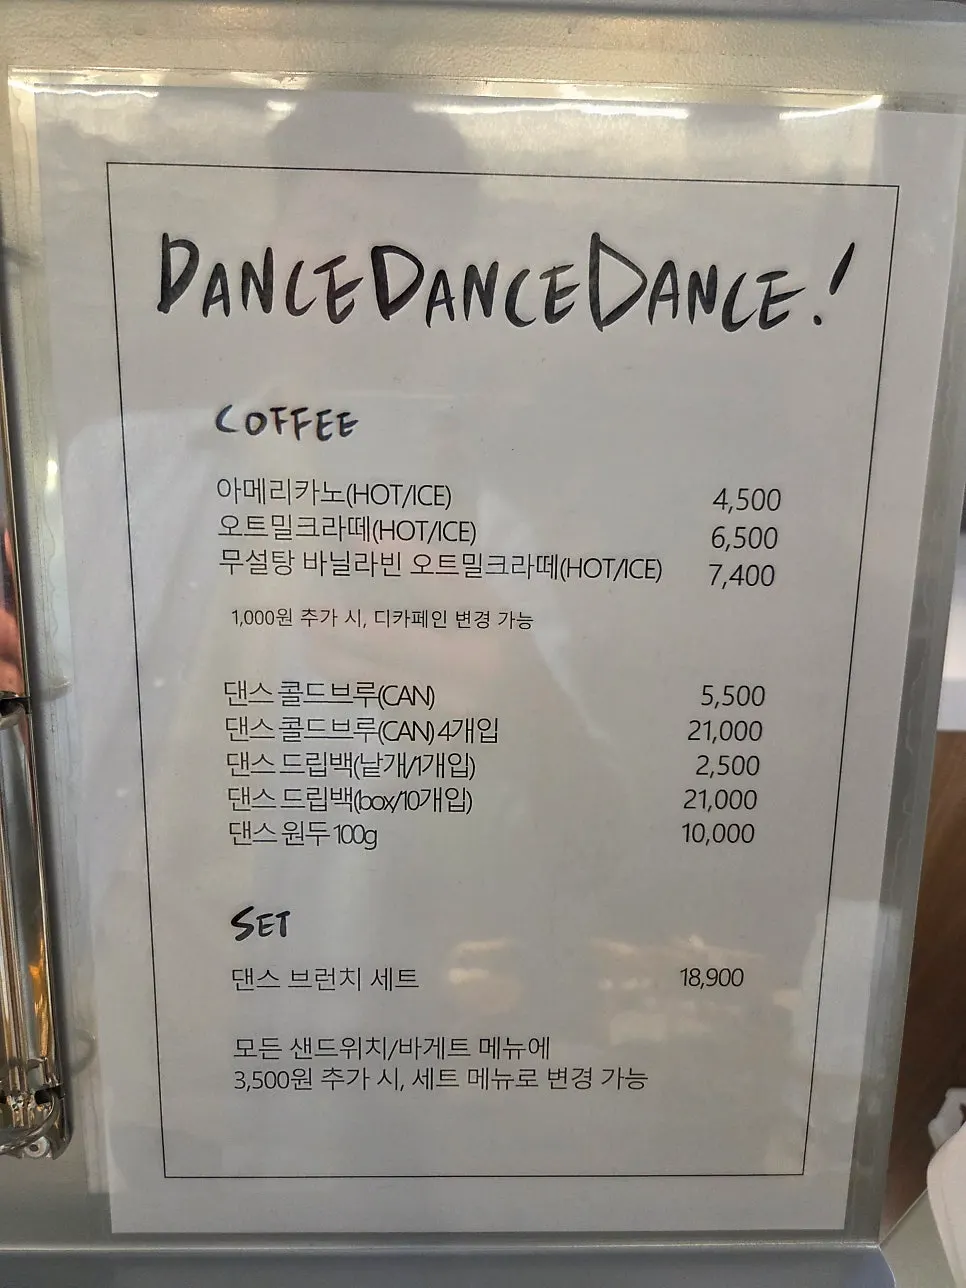 DANCEDANCEDANCE!
COFFEE
아메리카노(HOT/ICE) 4,500
오트밀크라떼(HOT/ICE) 6,500
무설탕 바닐라빈 오트밀크라떼(HOT/ICE) 7,400
1,000원 추가 시, 디카페인 변경 가능
댄스 콜드브루(CAN) 5,500
댄스 콜드브루(CAN) 4개입 21,000
댄스 드립백(낱개/1개입) 2,500
댄스 드립백(box/10개입) 21,000
댄스 원두 100g 10,000
SET
댄스 브런치 세트 18,900
모든 샌드위치/바게트 메뉴에
3,500원 추가 시, 세트 메뉴로 변경 가능